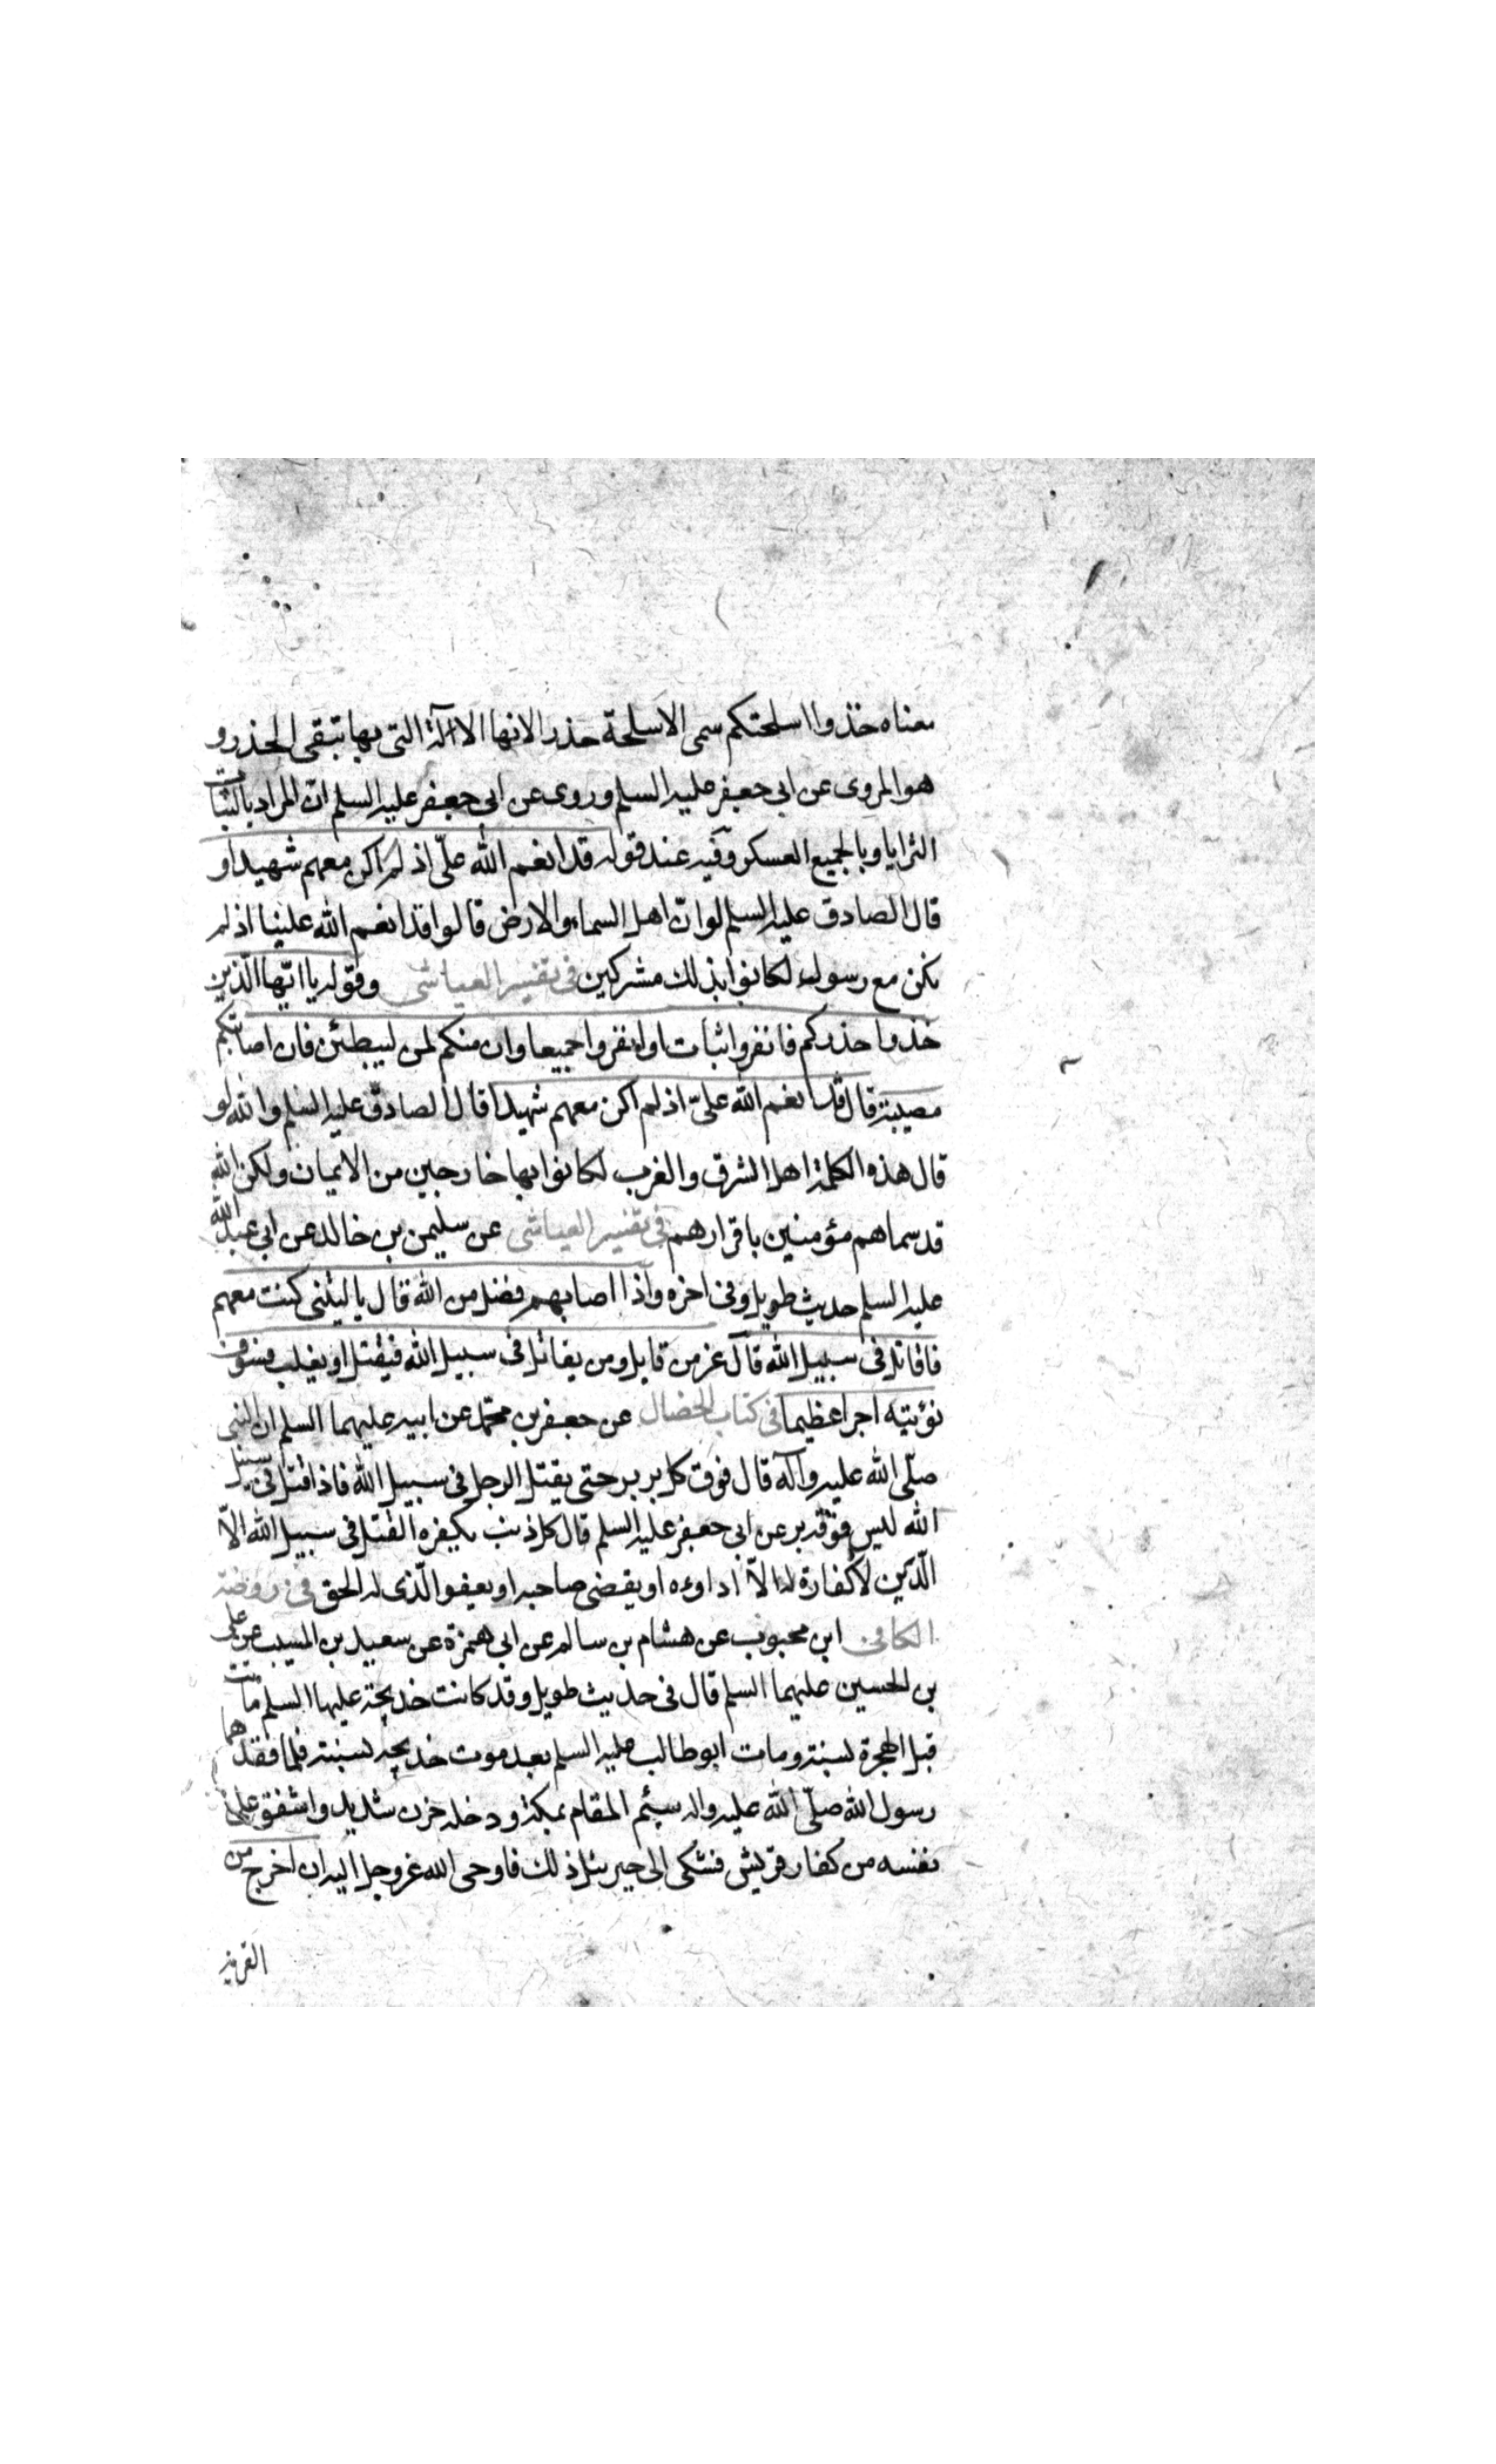 معناه خذوا اسلحتكم سمى الاسلحة حذرا لانها الاالآلة التى بها تتقى الحذر و
هو المروى عن ابى جعفر عليه السلم وروى عن ابى جعفر عليه السلم ان المراد بالثبات
السرايا وبالجميع العسكر وفيه عند قوله قد انعم الله علىّ اذ لم اكن معهم شهيدا و
قال الصادق عليه السلم لو ان اهل السماء والارض قالوا قد انعم الله علينا اذ لم
نكن مع رسول لكانوا بذلك مشركين فى تفسير العياشى وقوله يا ايّها الّذين
خذوا حذركم فانفروا ثبات او انفروا جميعا وان منكم لمن ليبطئن فان اصابتكم
مصيبة قال قد انعم الله علىّ اذ لم اكن معهم شهيدا قال الصادق عليه السلم والله لو
قال هذه الكلمة اهل الشرق والغرب لكانوا بها خارجين من الايمان ولكن الله
قد سماهم مؤمنين باقرارهم فى تفسير العياشى عن سليمن بن خالد عن ابى عبد الله
عليه السلم حديث طويل وفى اخره واذا اصابهم فضل من الله قال ياليتنى كنت معهم
فاقاتل فى سبيل الله قال عز من قايل ومن يقاتل فى سبيل الله فيقتل او يغلب فسوف
نؤتيه اجرا عظيما فى كتاب الخصال عن جعفر بن محمّد عن ابيه عليهما السلم ان النبى
صلّى الله عليه وآله قال فوق كل بر بر حتى يقتل الرجل فى سبيل الله فاذا قتل فى سبيل
الله ليس فوقه بر عن ابى جعفر عليه السلم قال كل ذنب يكفره القتل فى سبيل الله الاّ
الّدين لا كفارة له الاّ اداوءه او يقضى صاحبه او يعفو الّذى له الحق فى روضة
الكافى ابن محبوب عن هشام بن سالم عن ابى حمزة عن سعيد بن المسيب عن على
بن الحسين عليهما السلم قال فى حديث طويل وقد كانت خديجة عليها السلم ماتت
قبل الهجرة بسنة ومات ابو طالب عليه السلم بعد موت خديجة بسنة فلما فقدهما
رسول الله صلّى الله عليه واله سيئم المقام بمكة ودخله حزن شديد واشفق على
نفسه من كفار قريش فشكى الى جبرئيل ذلك فاوحى الله عزوجل اليه ان اخرج من
القرية